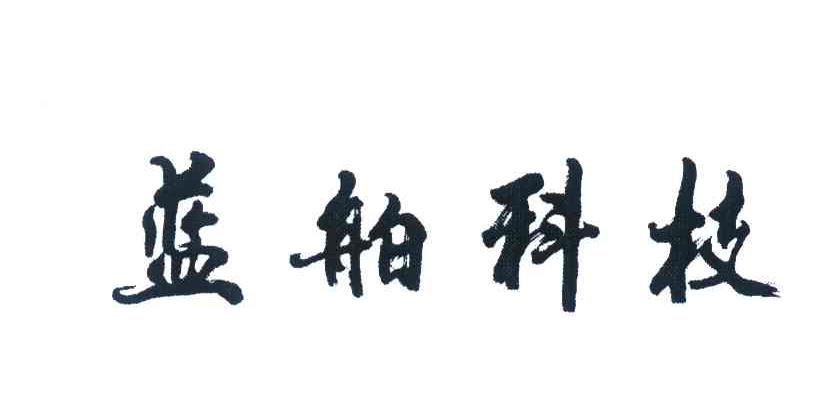 蓝舶科技